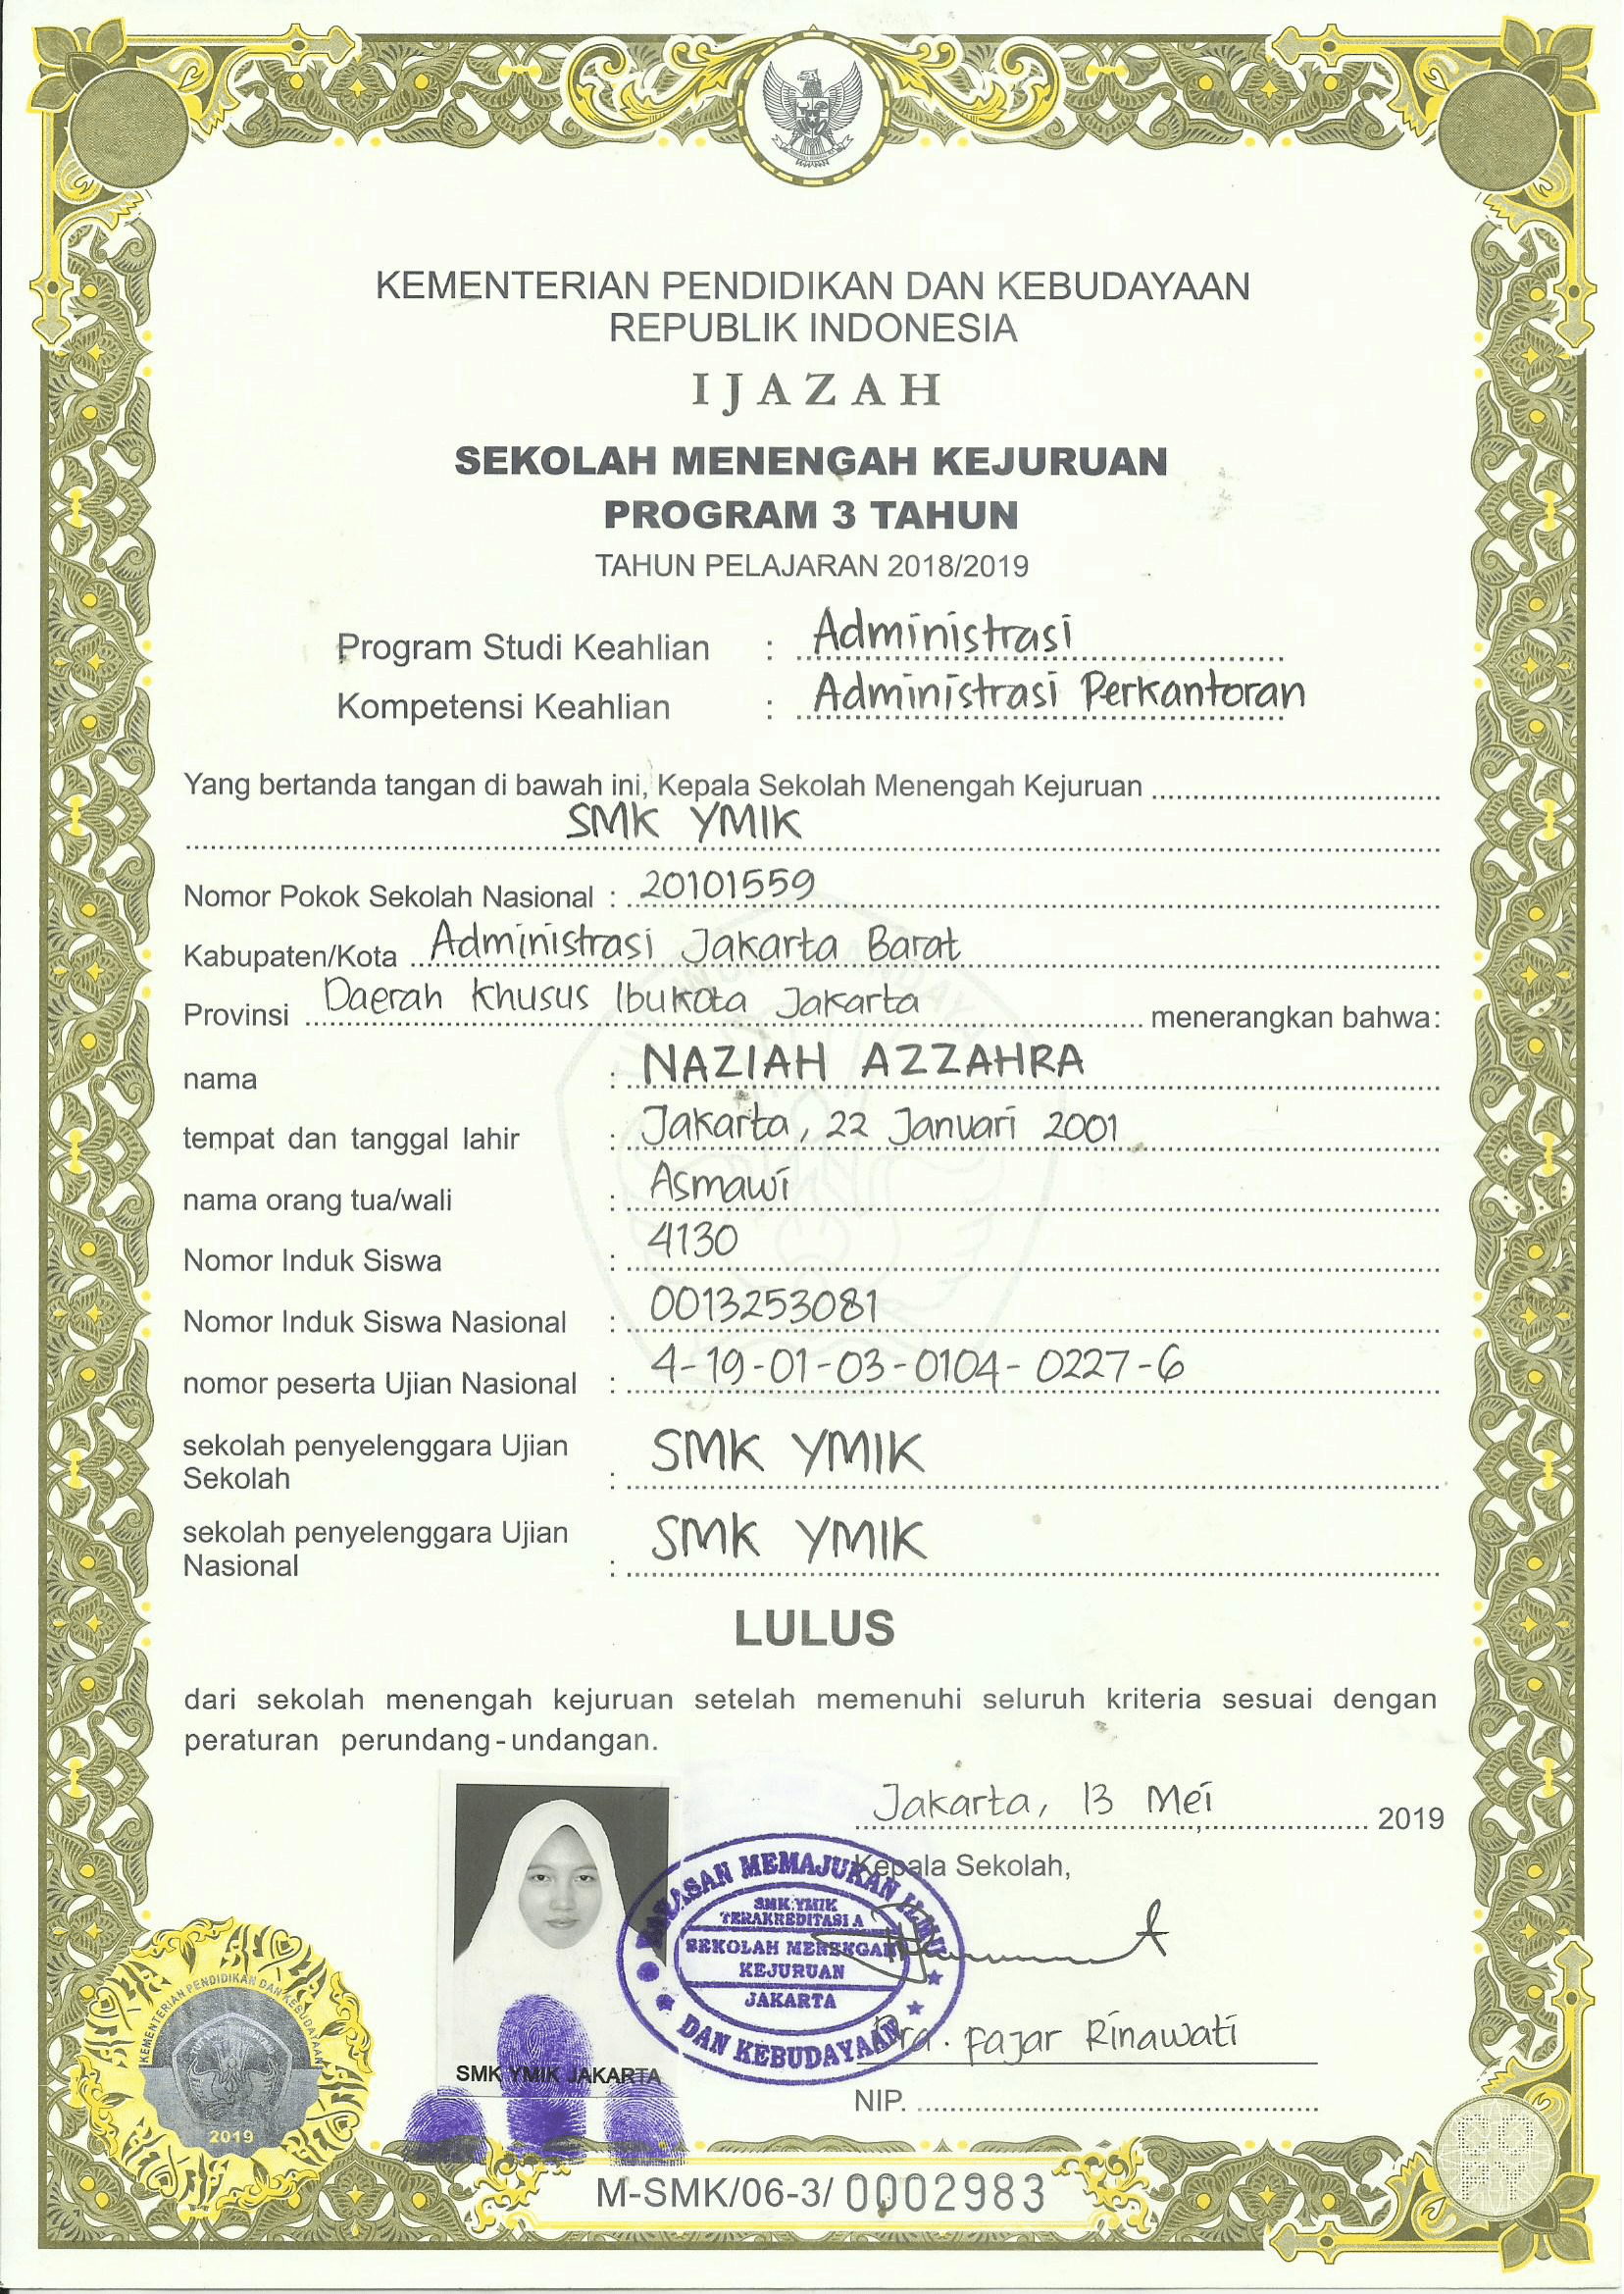 KEMENTERIAN PENDIDIKAN DAN KEBUDAYAAN
REPUBLIK INDONESIA
IJAZAH
SEKOLAH MENENGAH KEJURUAN
PROGRAM 3 TAHUN
TAHUN PELAJARAN 2018/2019
Program Studi Keahlian : Administrasi
Kompetensi Keahlian : Administrasi Perkantoran
Yang bertanda tangan di bawah ini, Kepala Sekolah Menengah Kejuruan
SMK YMIK
Nomor Pokok Sekolah Nasional : 20101559
Kabupaten/Kota Administrasi Jakarta Barat
Provinsi Daerah Khusus Ibukota Jakarta menerangkan bahwa:
nama : NAZIAH AZZAHRA
tempat dan tanggal lahir : Jakarta, 22 Januari 2001
nama orang tua/wali : Asmawi
Nomor Induk Siswa : 4130
Nomor Induk Siswa Nasional : 0013253081
nomor peserta Ujian Nasional : 4-19-01-03-0104-0227-6
sekolah penyelenggara Ujian
Sekolah : SMK YMIK
sekolah penyelenggara Ujian
Nasional : SMK YMIK
LULUS
dari sekolah menengah kejuruan setelah memenuhi seluruh kriteria sesuai dengan
peraturan perundang-undangan.
Jakarta, 13 Mei, 2019
Kepala Sekolah,
YAYASAN MEMAJUKAN ILMU
SMK YMIK
TERAKREDITASI A
SEKOLAH MENENGAH
KEJURUAN
JAKARTA
DAN KEBUDAYAAN
Dra. Fajar Rinawati
NIP.
SMK YMIK JAKARTA
KEMENTERIAN PENDIDIKAN DAN KEBUDAYAAN
TUT WURI HANDAYANI
2019
M-SMK/06-3/ 0002983